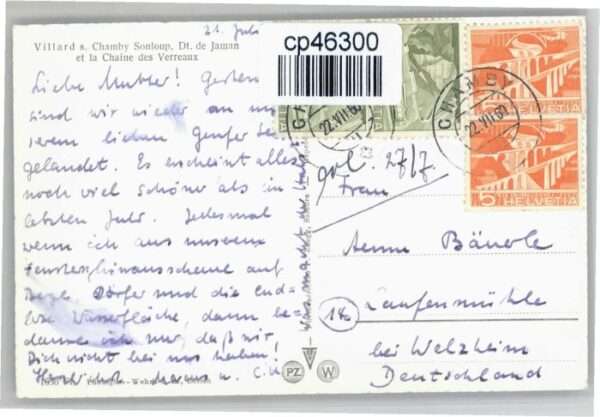 21. Juli
cp46300
Villard s. Chamby Sonloup, Dt. de Jaman
et la Chaine des Verreaux
Liebe Mutter! Gestern
sind wir wieder an un
serem lieben Genfer See
gelandet. Es erscheint alles
noch viel schöner als im
letzten Jahr. Jedesmal
wenn ich aus unserem
Fenster hinausschaue auf
Berge Dörfer und die end-
lose Wasserfläche, dann be-
daure ich nur, daß wir
Dich nicht bei uns haben!
Herzlichst
CHAMBY
22.VII.60
CHAMBY
22.VII.60
HELVETIA
5 HELVETIA
27/7
Frau
Bäuerle
Laufenmühle
bei Welzheim
Deutschland
(14a)
PZ W